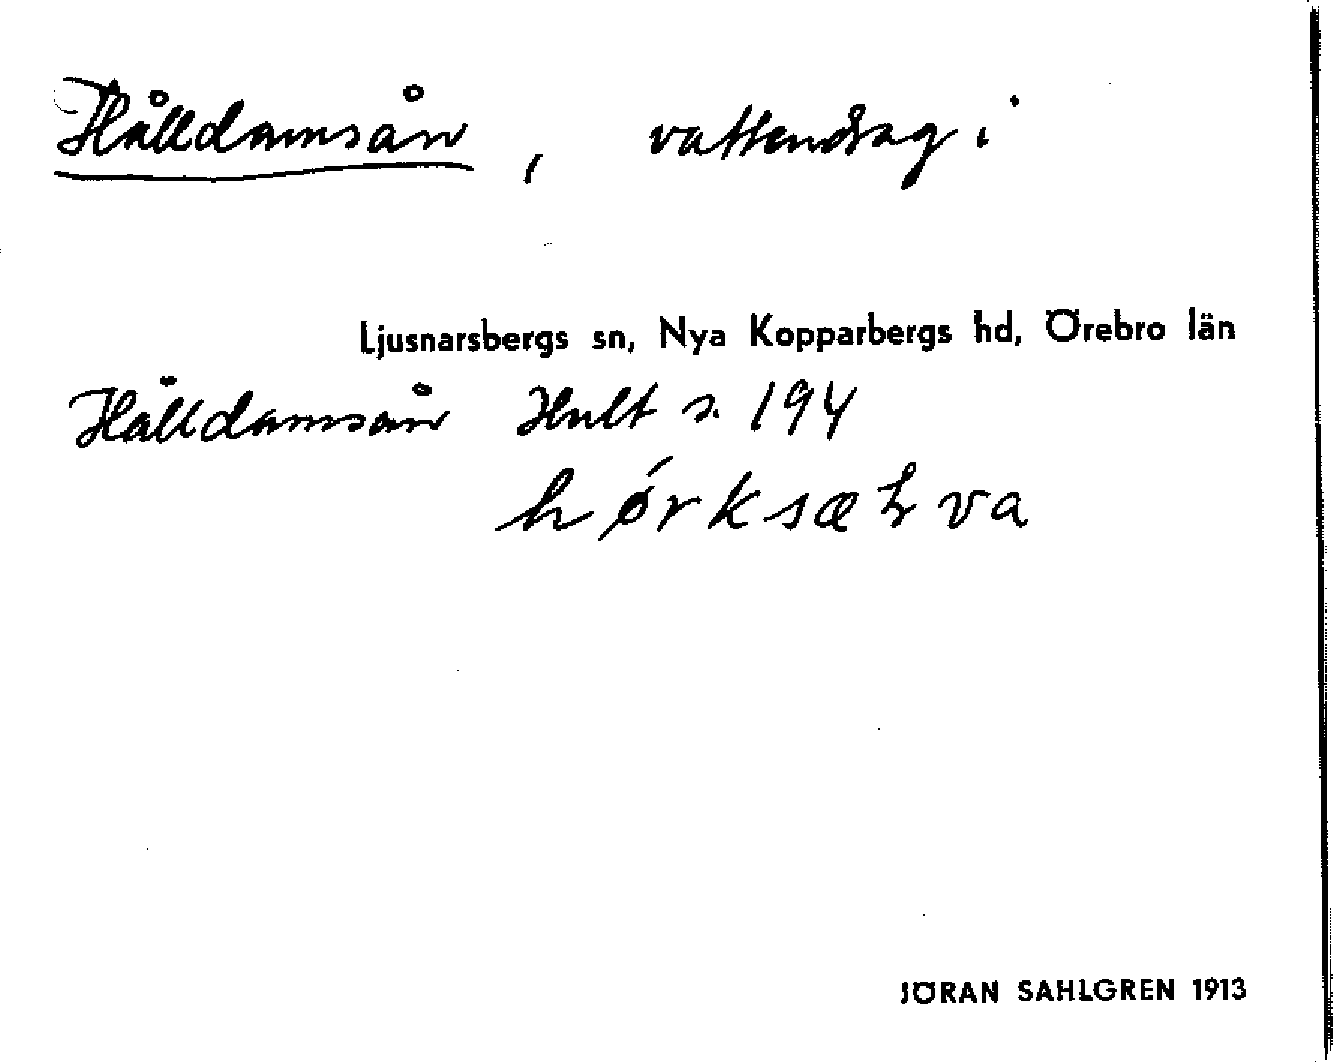 Hålldamsån, vattendrag i
Ljusnarsbergs sn, Nya Kopparbergs hd, Örebro län
Hålldamsån Hult s. 194
JÖRAN SAHLGREN 1913